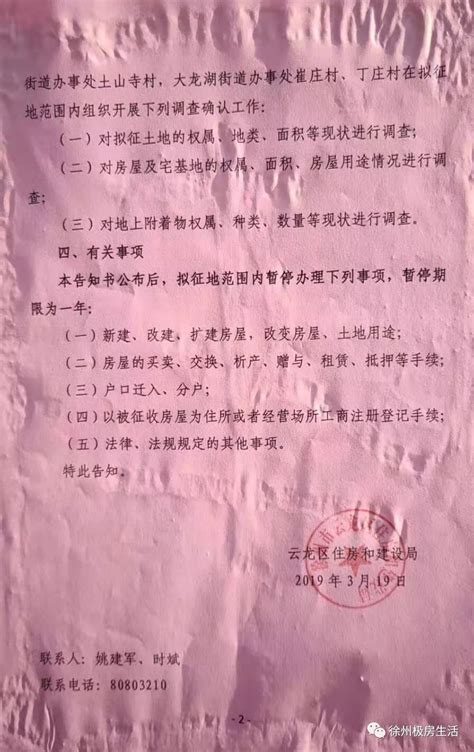 街道办事处土山寺村，大龙湖街道办事处崔庄村、丁庄村在拟征
地范围内组织开展下列调查确认工作:
（一）对拟征土地的权属、地类、面积等现状进行调查;
（二）对房屋及宅基地的权属、面积、房屋用途情况进行调
查;
（三）对地上附着物权属、种类、数量等现状进行调查。
四、有关事项
本告知书公布后，拟征地范围内暂停办理下列事项，暂停期
限为一年:
（一）新建、改建、扩建房屋，改变房屋、土地用途;
（二）房屋的买卖、交换、析产、赠与、租赁、抵押等手续;
（三）户口迁入、分户;
（四）以被征收房屋为住所或者经营场所工商注册登记手续;
（五）法律、法规规定的其他事项。
特此告知。
云龙区住房和建设局
2019 年 3 月 19 日
联系人: 姚建军、时斌
联系电话: 80803210
- 2 -
徐州极房生活